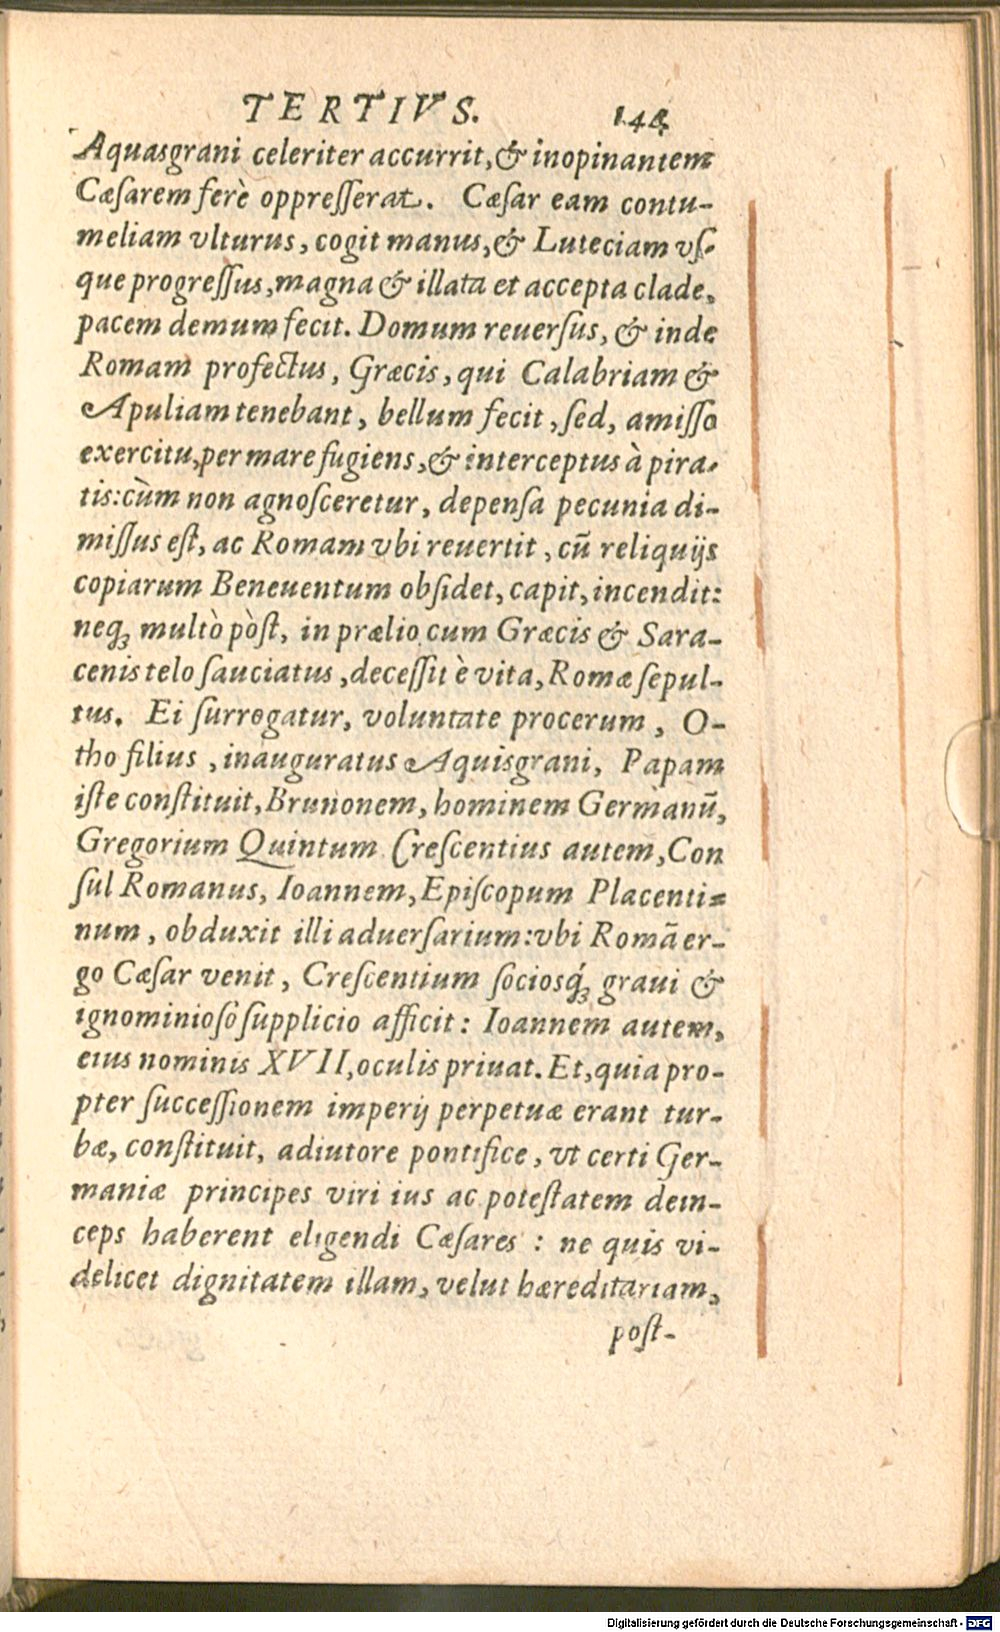 TERTIVS. 144
Aquasgrani celeriter accurrit, & inopinantem
Cæsarem ferè oppresserat. Cæsar eam contu-
meliam vlturus, cogit manus, & Luteciam vs-
que progressus, magna & illata et accepta clade,
pacem demum fecit. Domum reuersus, & inde
Romam profectus, Græcis, qui Calabriam &
Apuliam tenebant, bellum fecit, sed, amisso
exercitu, per mare fugiens, & interceptus à pira-
tis: cùm non agnosceretur, depensa pecunia di-
missus est, ac Romam vbi reuertit, cū reliquijs
copiarum Beneuentum obsidet, capit, incendit:
neqꝫ multò pòst, in prælio cum Græcis & Sara-
cenis telo sauciatus, decessit è vita, Romæ sepul-
tus. Ei surrogatur, voluntate procerum, O-
tho filius, inauguratus Aquisgrani, Papam
iste constituit, Brunonem, hominem Germanū,
Gregorium Quintum Crescentius autem, Con
sul Romanus, Ioannem, Episcopum Placenti-
num, obduxit illi aduersarium: vbi Romā er-
go Cæsar venit, Crescentium sociosqꝫ́ graui &
ignominioso supplicio afficit: Ioannem autem,
eius nominis XVII, oculis priuat. Et, quia pro-
pter successionem imperij perpetuæ erant tur-
bæ, constituit, adiutore pontifice, vt certi Ger-
maniæ principes viri ius ac potestatem dein-
ceps haberent eligendi Cæsares : ne quis vi-
delicet dignitatem illam, velut hæreditariam,
post-
Digitalisierung gefördert durch die Deutsche Forschungsgemeinschaft - DFG